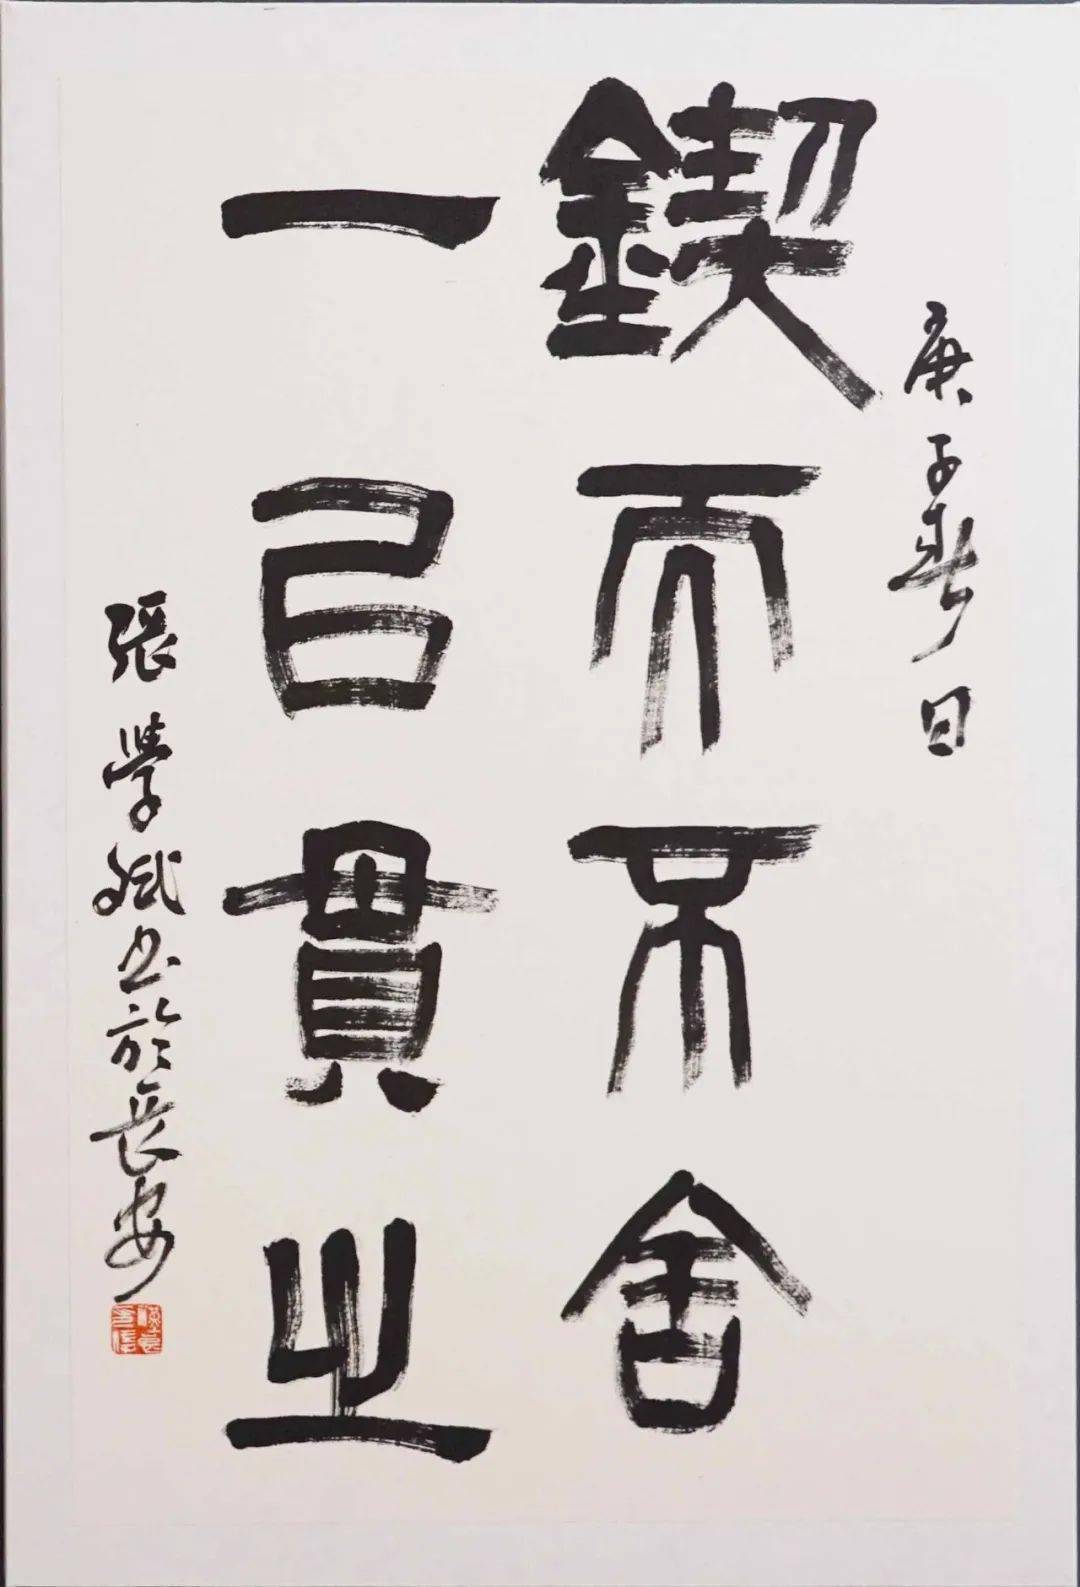 庚子春日
鍥而不舍
一以貫之
張學斌书於長安